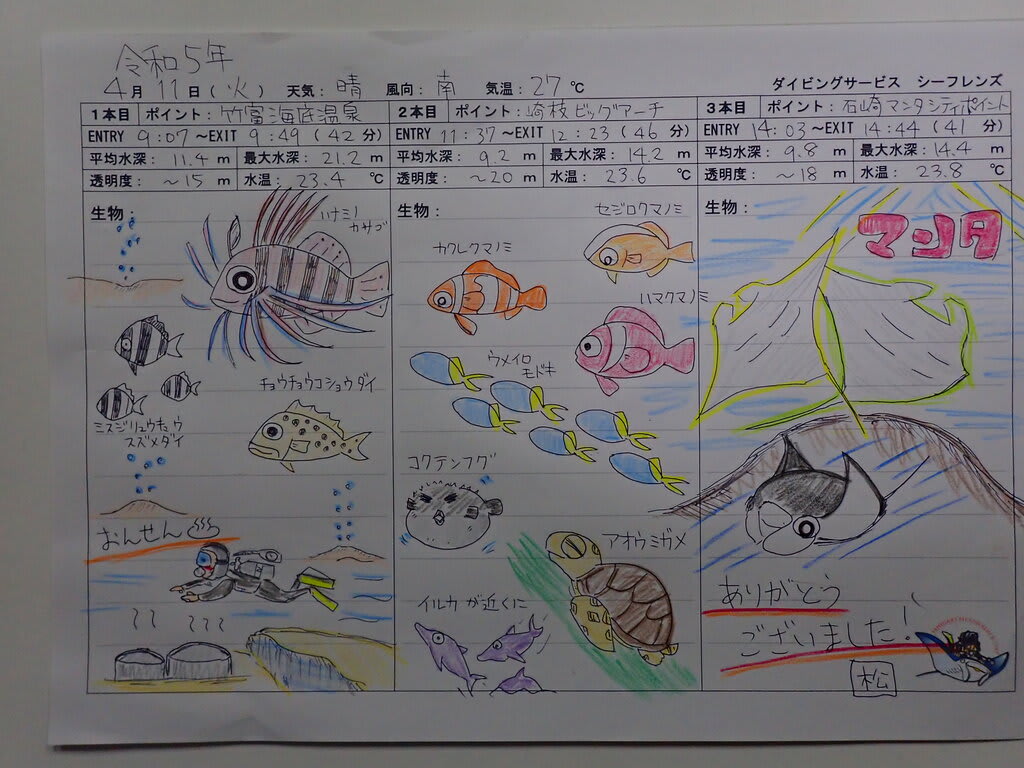 令和5年
4月11日(火) 天気:晴 風向:南 気温:27℃ ダイビングサービス シーフレンズ
1本目 ポイント:竹富海底温泉
ENTRY 9:07～EXIT 9:49(42分)
平均水深: 11.4 m 最大水深: 21.2 m
透明度: ～15 m 水温: 23.4 ℃
生物:
ハナミノ
カサゴ
チョウチョウコショウダイ
ミスジリュウキュウ
スズメダイ
おんせん♨
2本目 ポイント:崎枝ビッグアーチ
ENTRY 11:37～EXIT 12:23(46分)
平均水深: 9.2 m 最大水深: 14.2 m
透明度: ～20 m 水温: 23.6 ℃
生物:
セジロクマノミ
カクレクマノミ
ハマクマノミ
ウメイロ
モドキ
コクテンフグ
アオウミガメ
イルカが近くに
3本目 ポイント:石崎マンタシティポイント
ENTRY 14:03～EXIT 14:44(41分)
平均水深: 9.8 m 最大水深: 14.4 m
透明度: ～18 m 水温: 23.8 ℃
生物:
マンタ
ありがとう
ございました!
松